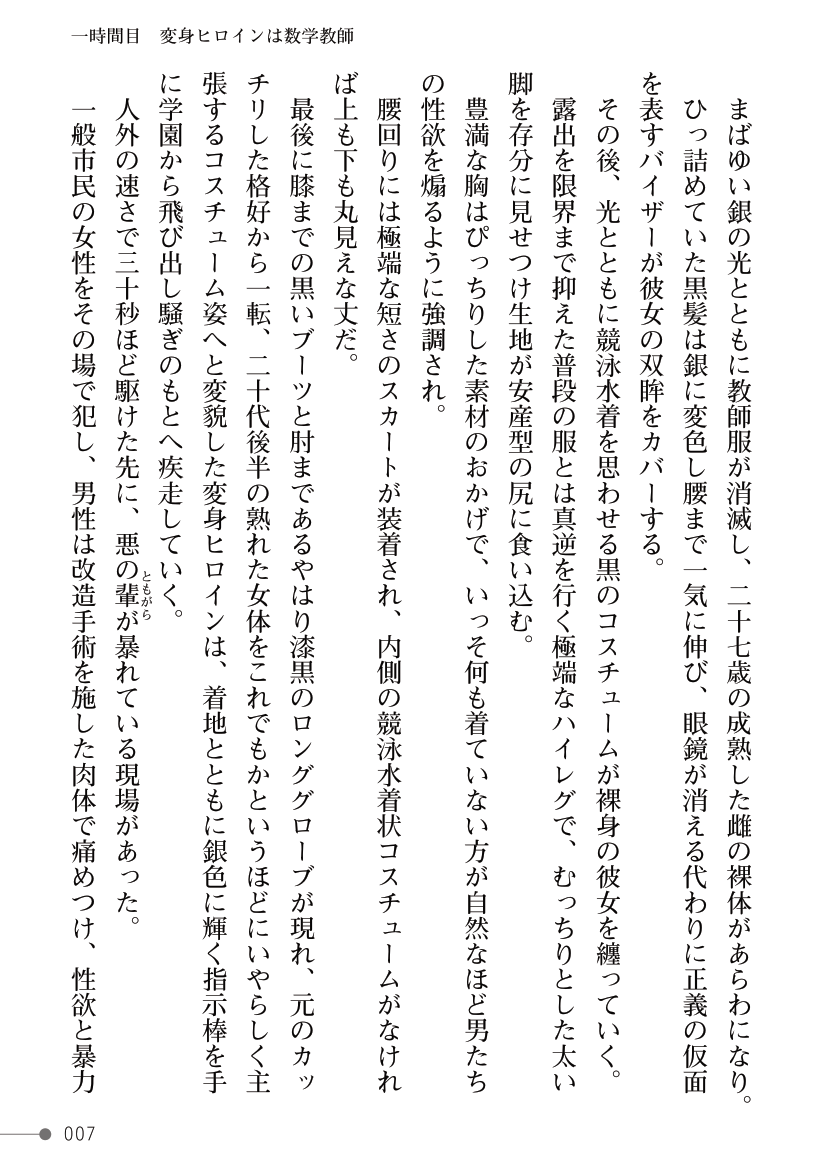 一時間目　変身ヒロインは数学教師
まばゆい銀の光とともに教師服が消滅し、二十七歳の成熟した雌の裸体があらわになり。
ひっ詰めていた黒髪は銀に変色し腰まで一気に伸び、眼鏡が消える代わりに正義の仮面
を表すバイザーが彼女の双眸をカバーする。
その後、光とともに競泳水着を思わせる黒のコスチュームが裸身の彼女を纏っていく。
露出を限界まで抑えた普段の服とは真逆を行く極端なハイレグで、むっちりとした太い
脚を存分に見せつけ生地が安産型の尻に食い込む。
豊満な胸はぴっちりした素材のおかげで、いっそ何も着ていない方が自然なほど男たち
の性欲を煽るように強調され。
腰回りには極端な短さのスカートが装着され、内側の競泳水着状コスチュームがなけれ
ば上も下も丸見えな丈だ。
最後に膝までの黒いブーツと肘まであるやはり漆黒のロンググローブが現れ、元のカッ
チリした格好から一転、二十代後半の熟れた女体をこれでもかというほどにいやらしく主
張するコスチューム姿へと変貌した変身ヒロインは、着地とともに銀色に輝く指示棒を手
に学園から飛び出し騒ぎのもとへ疾走していく。
人外の速さで三十秒ほど駆けた先に、悪の輩が暴れている現場があった。
ともがら
一般市民の女性をその場で犯し、男性は改造手術を施した肉体で痛めつけ、性欲と暴力
007